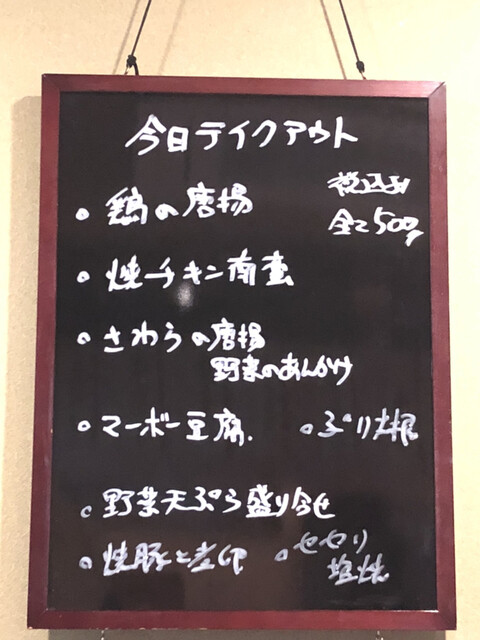 今日テイクアウト
税込み
全て500円
。鶏の唐揚
。焼チキン南蛮
。さわらの唐揚
野菜のあんかけ
。マーボー豆腐.
。ぶり大根
。野菜天ぷら盛り合せ
。焼豚と煮卵
。セセリ
塩焼